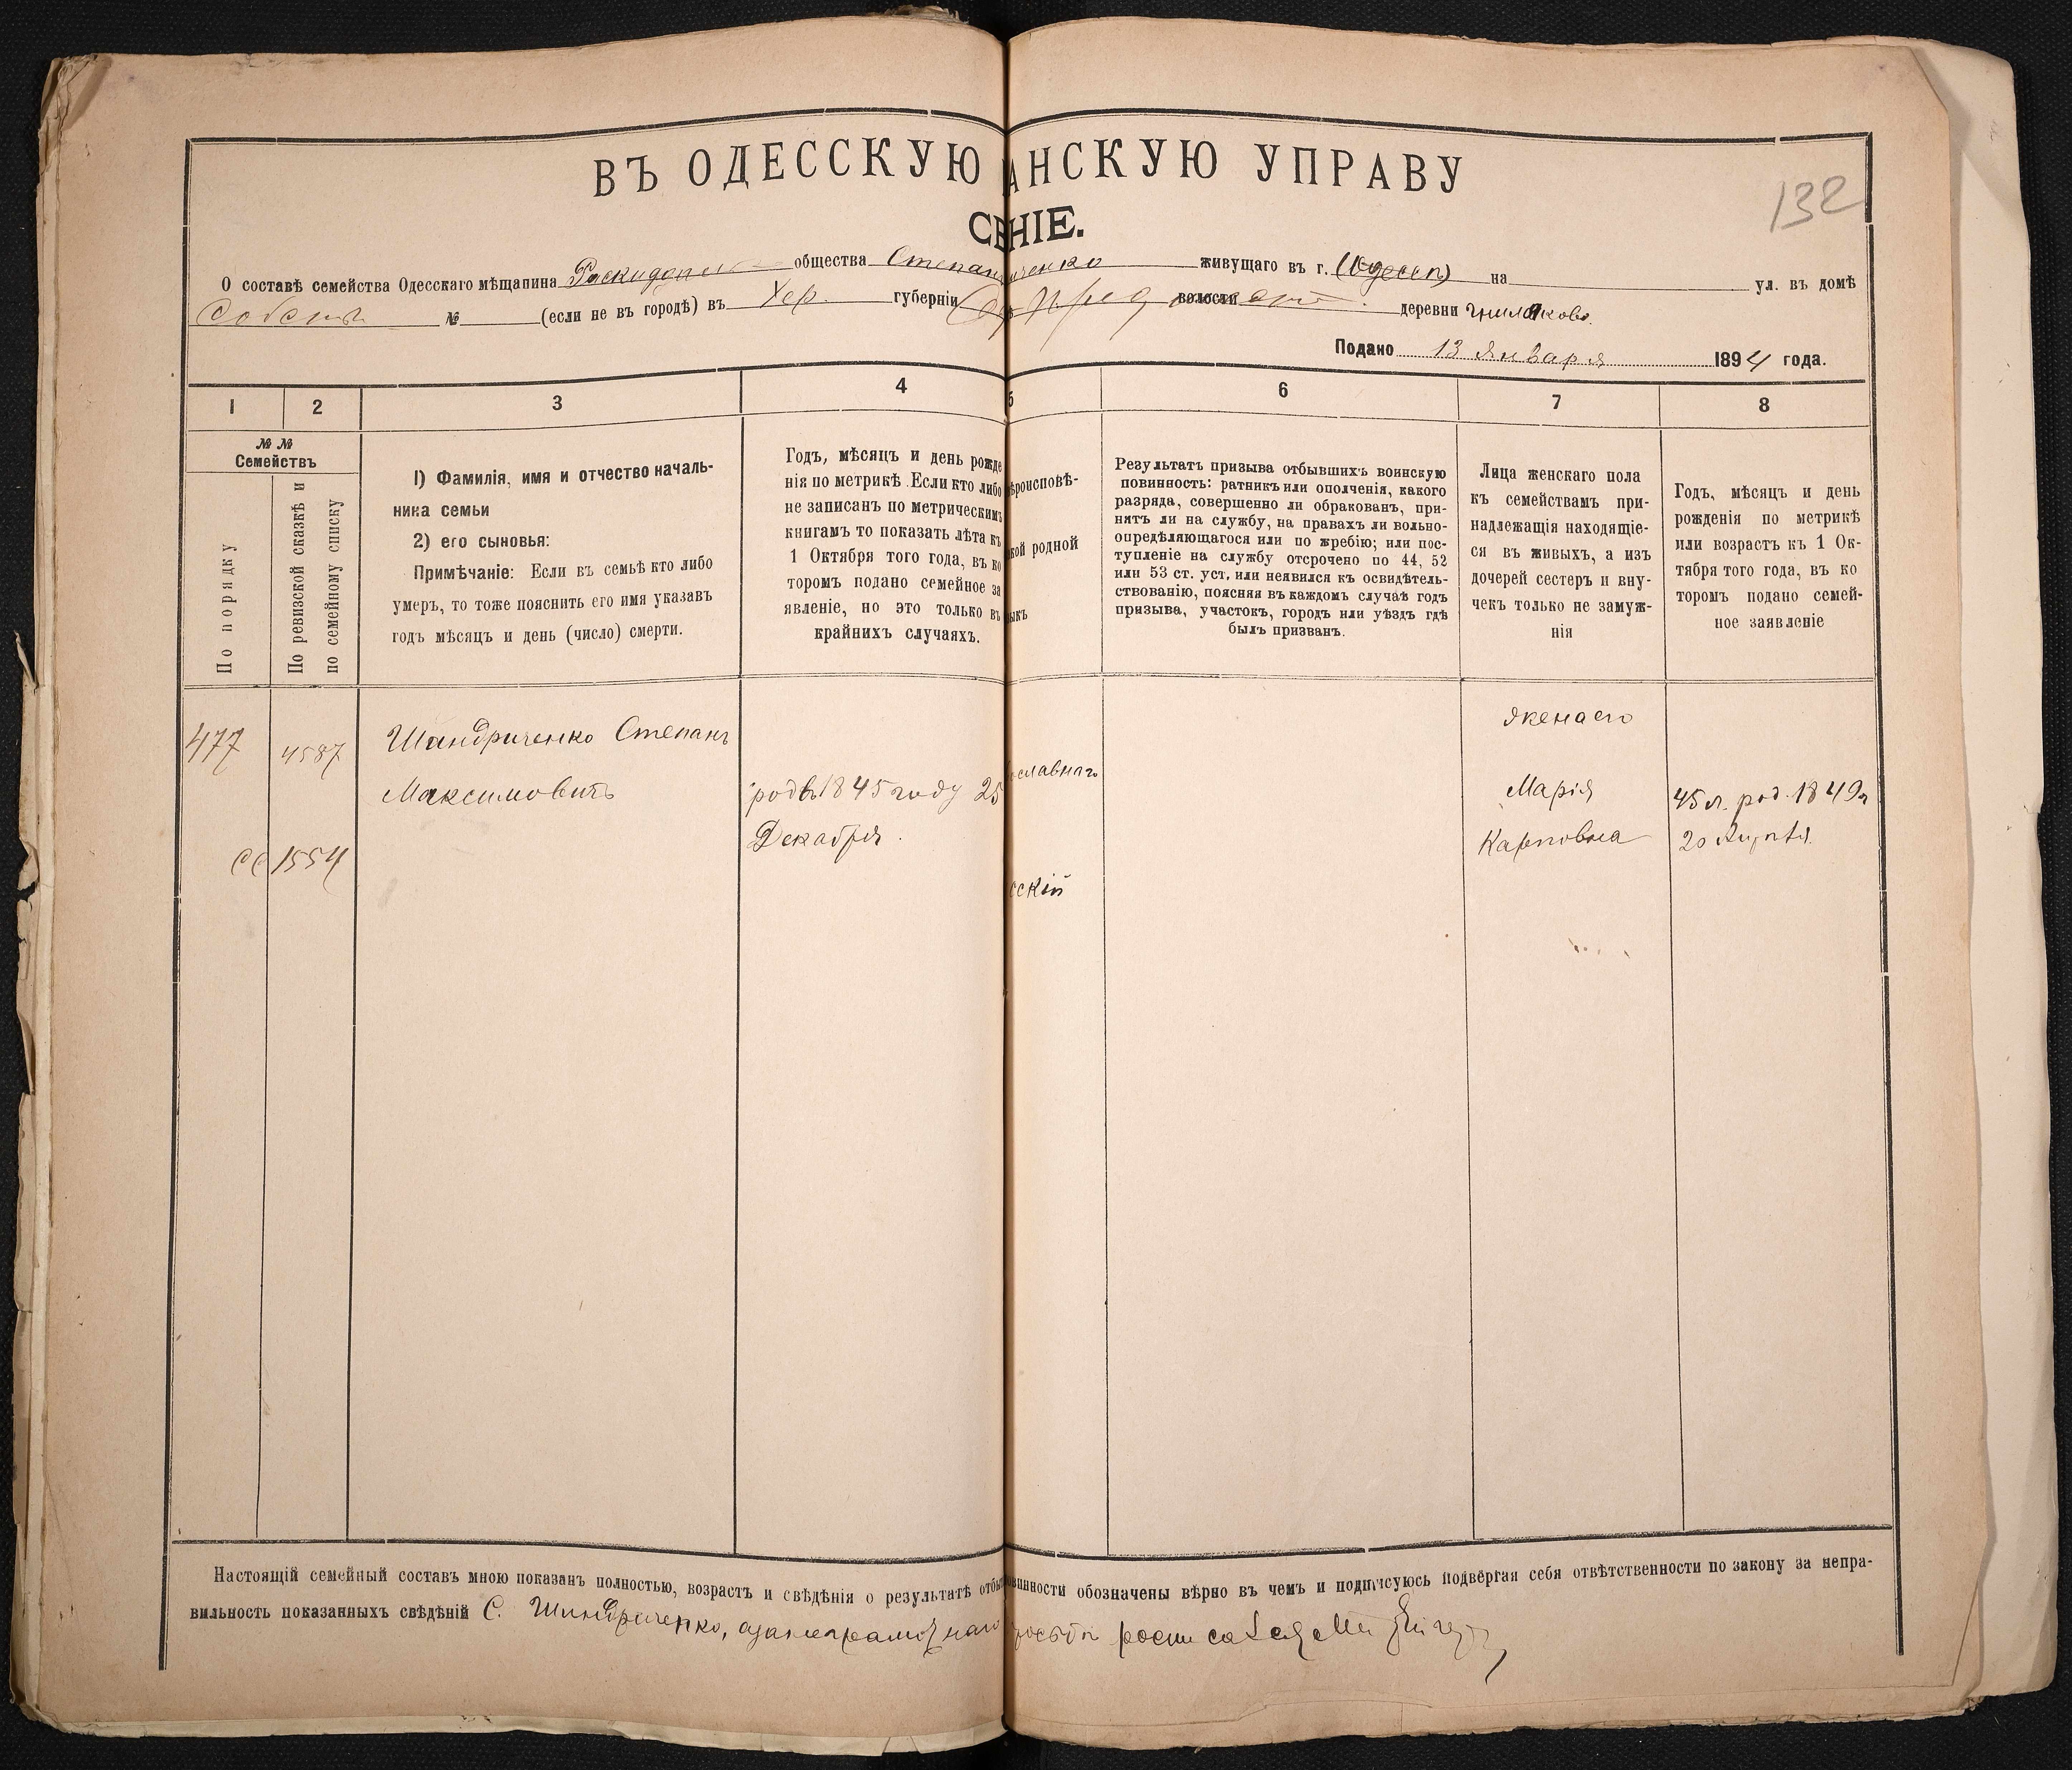 ВЪ ОДЕССКУЮ АНСКУЮ УПРАВУ
132
СЕНІЕ.
О составѣ семейства Одесскаго мѣщанина общества Степан ченко живущаго въ г. (Одессѣ) на ул. въ домѣ
№ (если не въ городѣ) въ Хер. губерніи волости деревни Гниляково.
Подано 13 Января 1894 года.
1 2 3 4 5 6 7 8
№ №
Семействъ
По порядку
По ревизской сказкѣ и
по семейному списку
1) Фамилія, имя и отчество началь-
ника семьи
2) его сыновья:
Примѣчаніе: Если въ семьѣ кто либо
умеръ, то тоже пояснить его имя указавъ
годъ мѣсяцъ и день (число) смерти.
Годъ, мѣсяцъ и день рожде
нія по метрикѣ. Если кто либо
не записанъ по метрическимъ
книгамъ то показать лѣта къ
1 Октября того года, въ ко
торомъ подано семейное за
явленіе, но это только въ
крайнихъ случаяхъ.
ѣроисповѣ-
кой родной
ыкъ
Результатъ призыва отбывшихъ воинскую
повинность: ратникъ или ополченія, какого
разряда, совершенно ли обракованъ, при-
нятъ ли на службу, на правахъ ли вольно-
опредѣляющагося или по жребію; или пос-
тупленіе на службу отсрочено по 44, 52
или 53 ст. уст. или неявился къ освидѣтель-
ствованію, поясняя въ каждомъ случаѣ годъ
призыва, участокъ, городъ или уѣздъ гдѣ
былъ призванъ.
Лица женскаго пола
къ семействамъ при-
надлежащія находящіе-
ся въ живыхъ, а изъ
дочерей сестеръ и вну-
чекъ только не замуж-
нія
Годъ, мѣсяцъ и день
рожденія по метрикѣ
или возрастъ къ 1 Ок-
тября того года, въ ко
торомъ подано семей-
ное заявленіе
477
4587
сс 1554
Шандриченко Степанъ
Максимовичъ
род въ 1845 году 25
Декабря.
ославнаго
сскій
Жена его
Марія
Карповна
45 л. род. 1849 г
20
Настоящій семейный составъ мною показанъ полностью, возрастъ и свѣдѣнія о результатѣ отбы овинности обозначены вѣрно въ чемъ и подписуюсь подвергая себя отвѣтственности по закону за непра-
вильность показанныхъ свѣдѣній С. Шандриченко, росписался